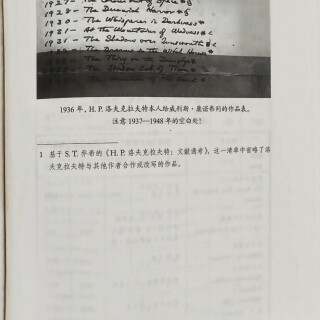 1927- The Colour Out of Space
1928- The Dunwich Horror
1930- The Whisperer in Darkness
1931- At the Mountains of Madness
1931- The Shadow over Innsmouth
1932- The Dreams in the Witch House
The Thing on the Doorstep
The Shadow Out of Time
1936 年，H. P. 洛夫克拉夫特本人给威利斯·康诺弗列的作品表。
注意 1937—1948 年的空白处！
1 基于 S. T. 乔希的《H. P. 洛夫克拉夫特：文献通考》，这一清单中省略了洛
夫克拉夫特与其他作者合作或改写的作品。